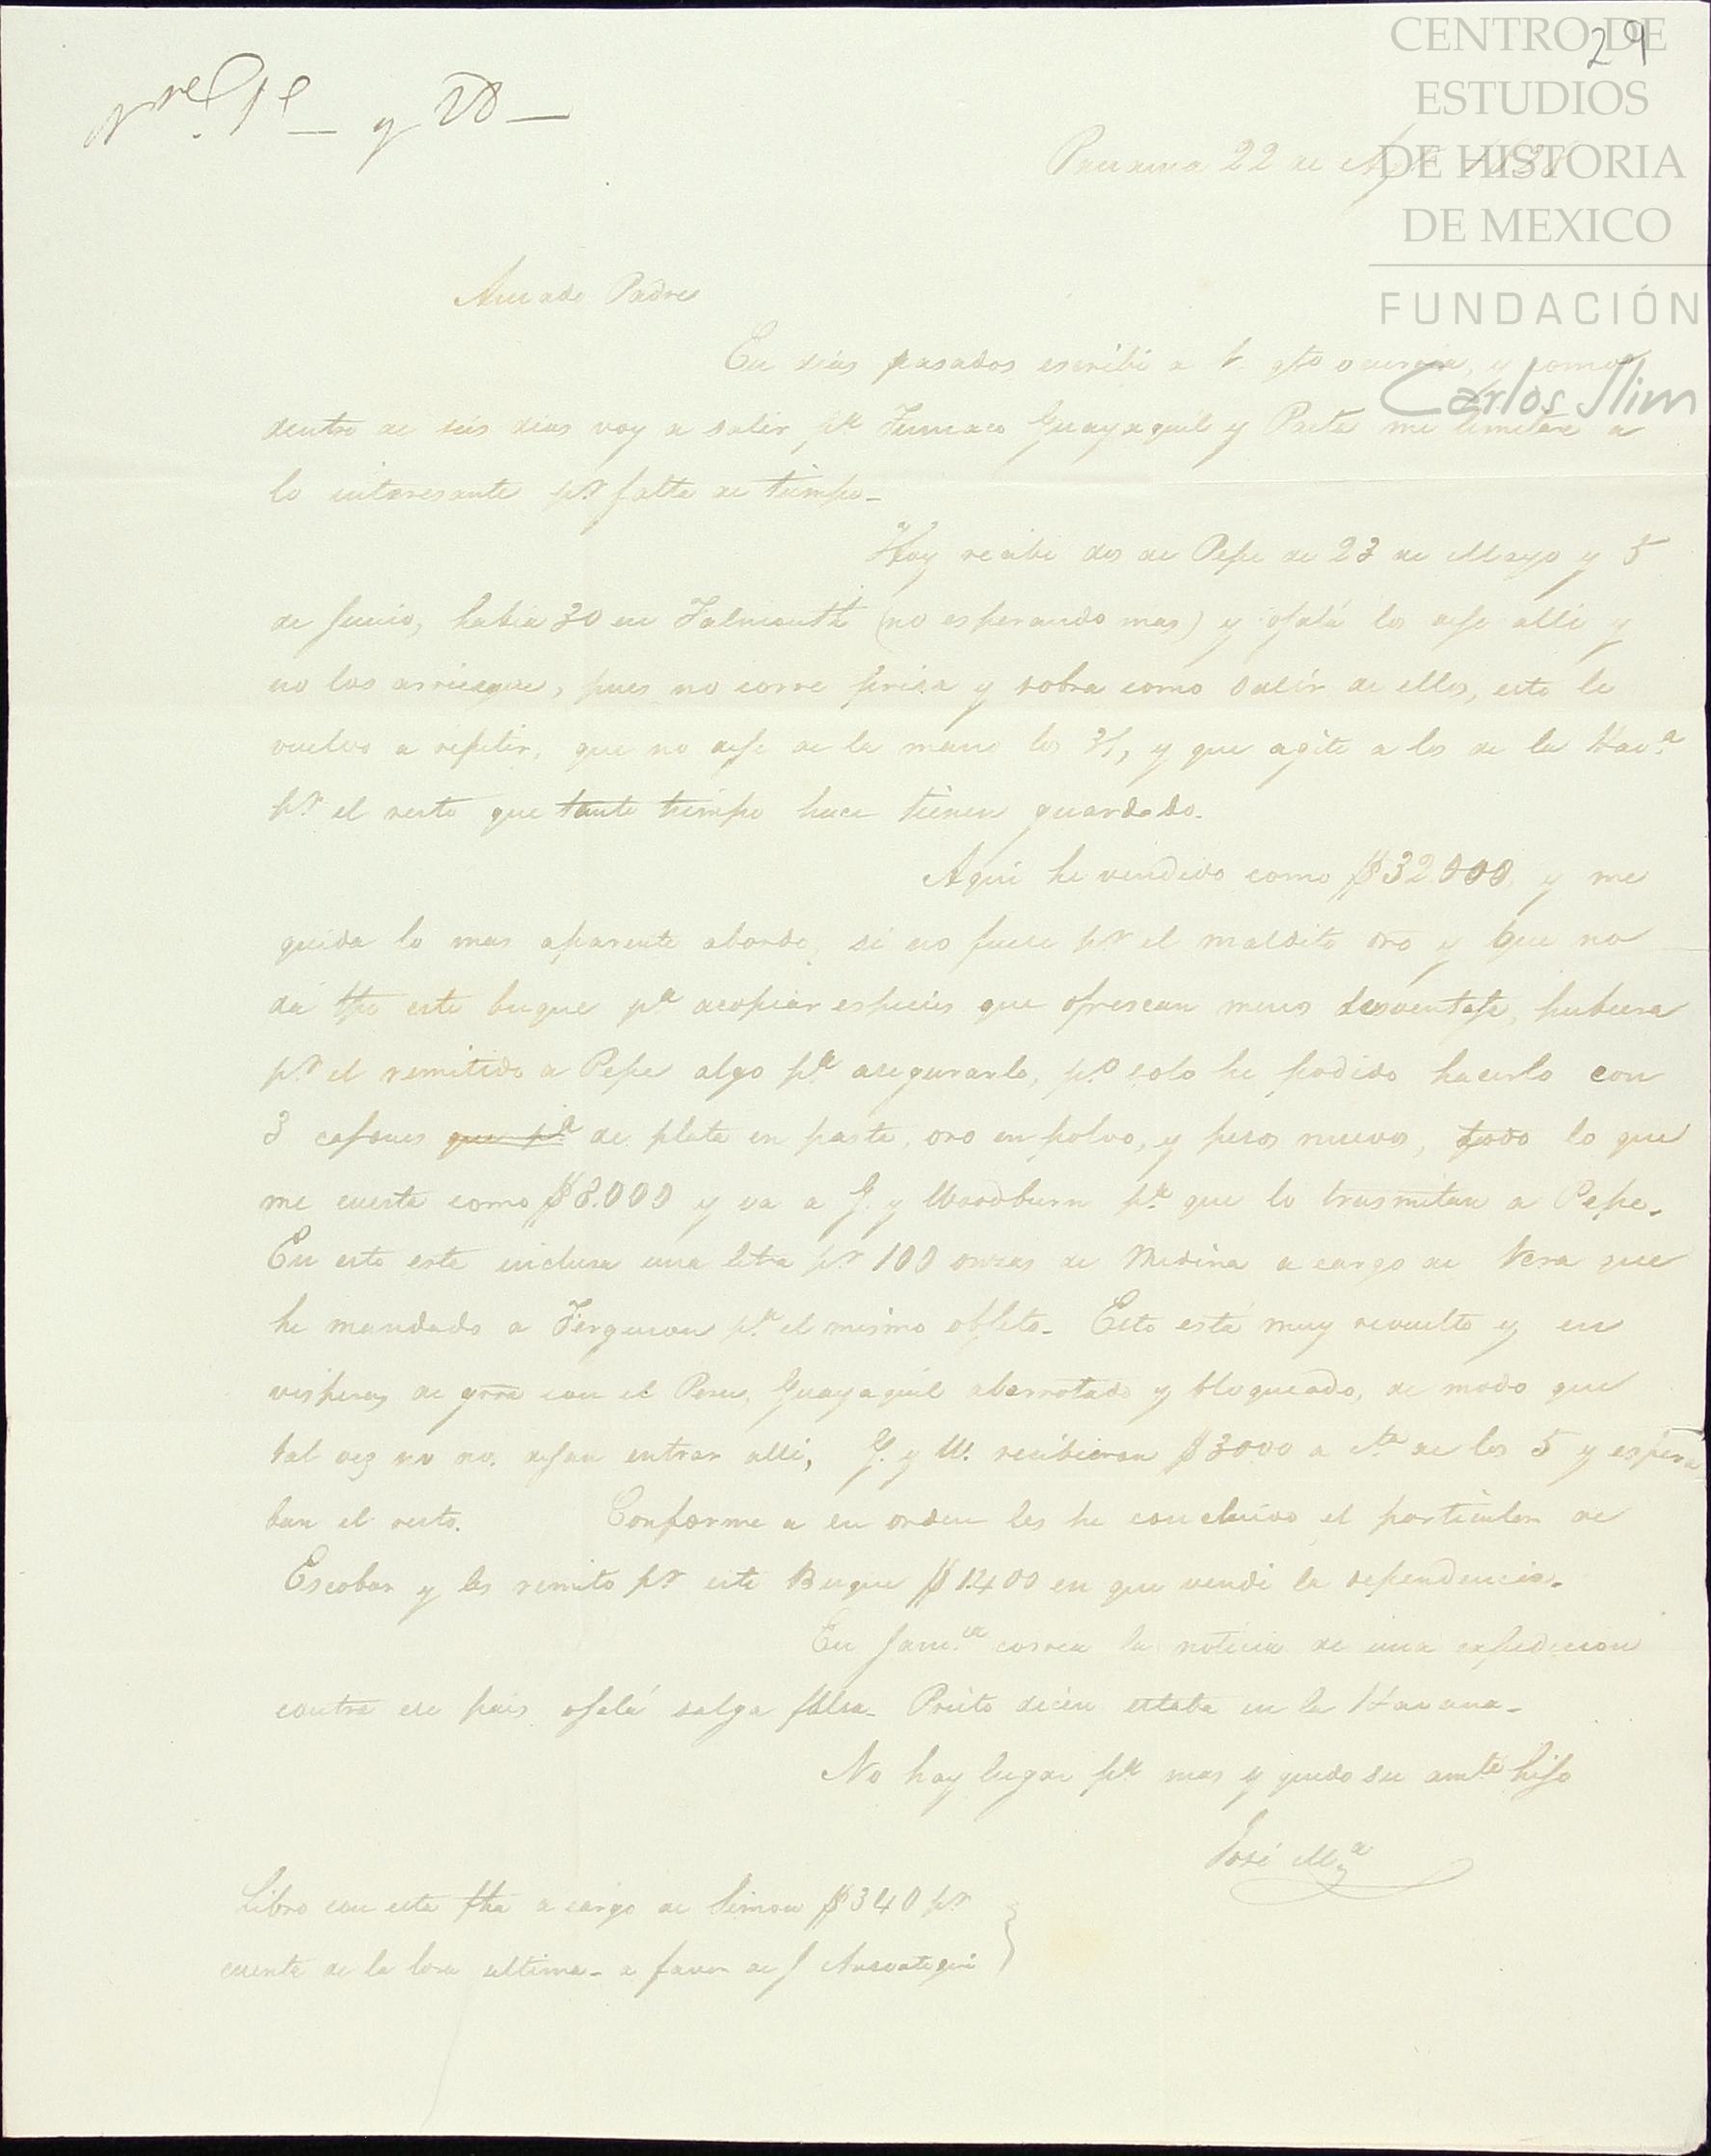 29
CENTRO DE
ESTUDIOS
DE HISTORIA
DE MEXICO
FUNDACIÓN
Carlos Slim
y
Panama 22 de
Amado Padre
En dias pasados escribi a V. qto ocurria, y como
dentro de seis dias voy a salir pa Tumaco Guayaquil y Paita me limitare a
lo interesante pr falta de tiempo_
Hoy recibi dos de Pepe de 23 de Mayo y 5
de Junio, habia 30 en Falmouth (no esperando mas) y ojalá los deje alli y
no los arriesgue, pues no corre prisa y sobra como salir de ellos, esto le
vuelvo a repetir, que no deje de la mano los 31, y que agite a los de la Hava.
pr el resto que tanto tiempo hace tienen guardado.
Aqui he vendido como $32.000 y me
queda lo mas aparente abordo, si no fuera pr el maldito oro y que no
dá tpo este buque pa acopiar especies que ofrescan menos desventaja, hubiera
pr el remitido a Pepe algo pa asegurarlo, po solo he podido hacerlo con
3 cajones que pa de plata en pasta, oro en polvo, y pesos nuevos, todo lo que
me cuesta como $8.000 y va a G. y Woodburn pa que lo trasmitan a Pepe.
En esto esta inclusa una letra pr 100 onzas de Medina a cargo de Vera que
he mandado a Ferguson pa el mismo objeto_ Esto está muy revuelto y en
visperas de grra con el Peru, Guayaquil abarrotado y bloqueado, de modo que
tal vez no nos dejan entrar alli, G. y W. recibieron $3000 a cta de los 5 y espera
ban el resto. Conforme a su orden les he concluido el particular de
Escobar y les remito pr este Buque $1400 en que vendi la dependencia.
En Jamca corria la noticia de una expedicion
contra ese pais ojalá salga falsa_ Prieto dicen estaba en la Havana_
No hay lugar pa mas y quedo su amte hijo
José Ma
Libro con esta fha a cargo de Simon $340 pr
cuenta de la última_ a favor de J